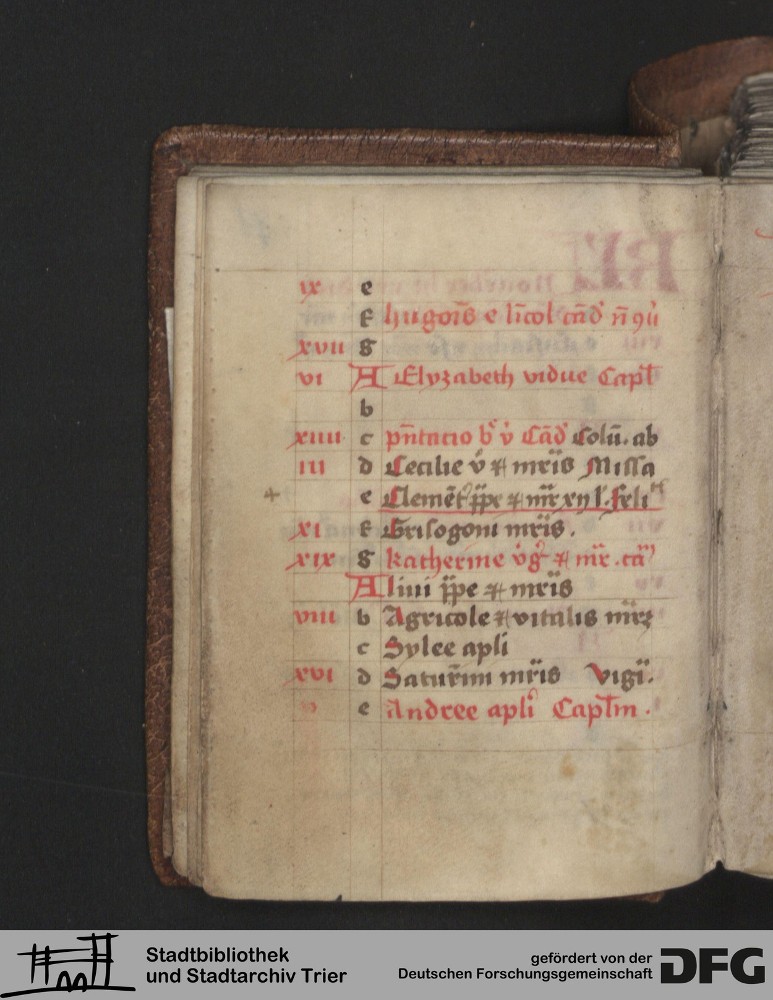 ix e
f hugois e licol cād n̄ 9ū
xvii g
vi A Elyzabeth vidue Capl̄
b
xiiii c pn̄tatio b v̊ Cād Colū. ab
iii d Cecilie v̊ et mr̄is Missa
e Clemēt pp̄e et mr̄ xii l. feli
xi f Grisogoni mr̄is.
xix g Katherine v̊g et mr̄. cā
A lini pp̄e et mr̄is
viii b Agricole et vitalis mr̄z
c Sylee apli
xvi d Saturn̄ini mr̄is Vigī.
e Andree apli Caplm̄.
Stadtbibliothek
und Stadtarchiv Trier
gefördert von der
Deutschen Forschungsgemeinschaft DFG